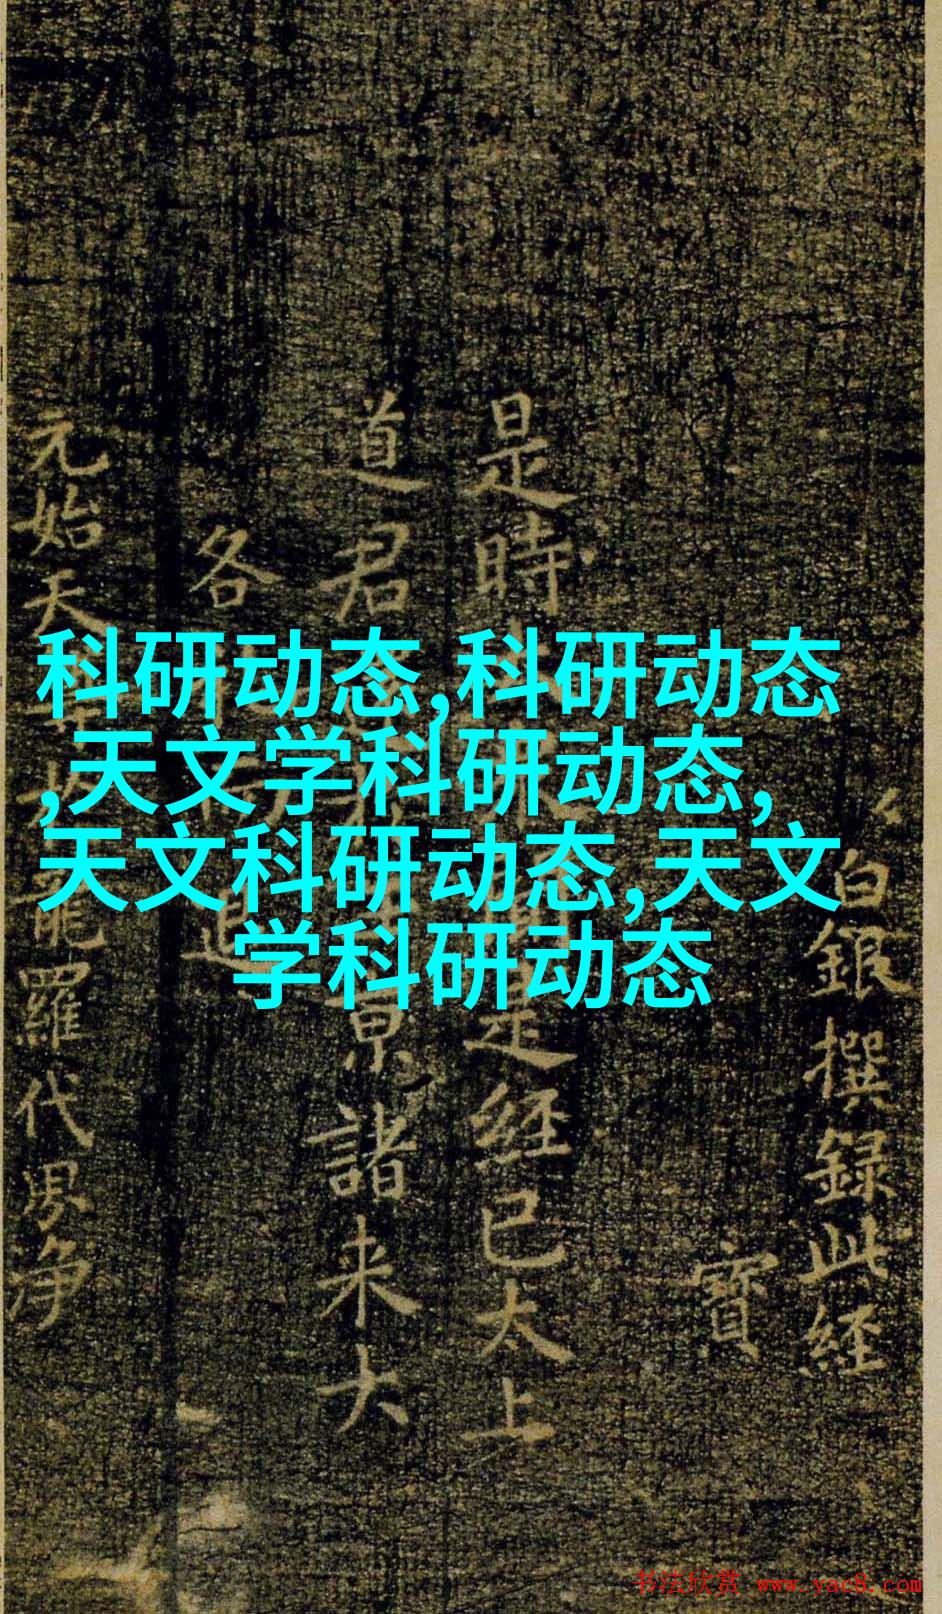 科研动态,科研动态
,天文学科研动态,
天文科研动态,天文
学科研动态
白銀撰録此經
寶
是時
是經已太上
道君
景諸来大
各
元始天
龍羅代界净
书法欣赏 www.yac8.com